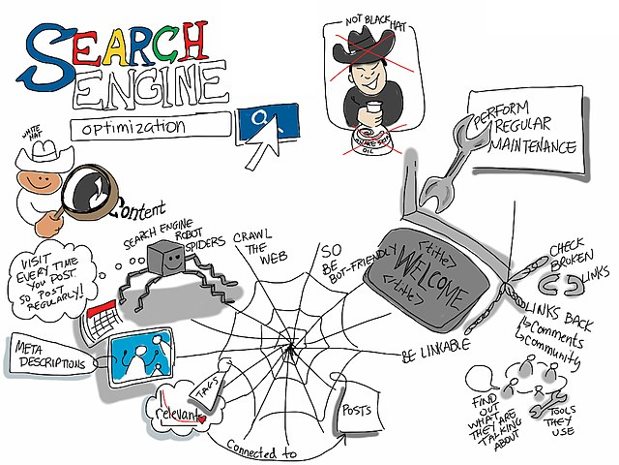 SEARCH
ENGINE
optimization
NOT BLACK HAT
OIL
PERFORM
REGULAR
MAINTENANCE
WHITE
HAT
Content
SEARCH ENGINE
ROBOT
SPIDERS
CRAWL
THE
WEB
SO
BE
BOT-FRIENDLY
<title>
WELCOME
</title>
CHECK
BROKEN
LINKS
VISIT
EVERY TIME
YOU POST
SO POST
REGULARLY!
LINKS BACK
Comments
community
META
DESCRIPTIONS
BE LINKABLE
TAGS
relevant
POSTS
Connected to
FIND
OUT
WHAT
THEY ARE
TALKING
ABOUT
TOOLS
THEY
USE